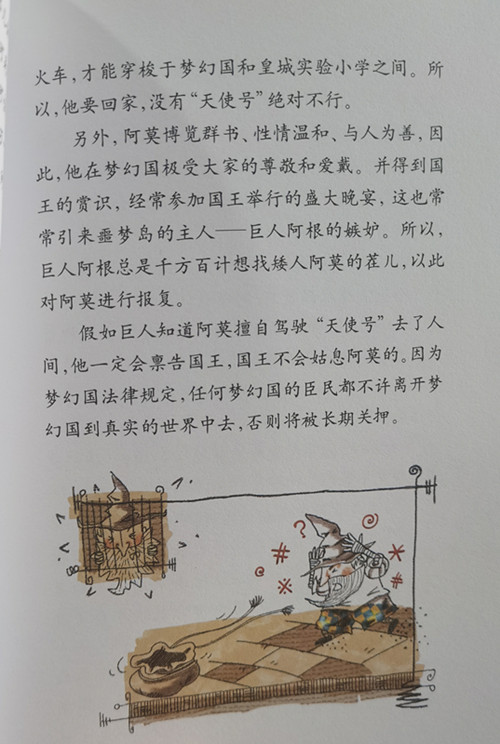 火车，才能穿梭于梦幻国和皇城实验小学之间。所
以，他要回家，没有“天使号”绝对不行。
另外，阿莫博览群书、性情温和、与人为善，因
此，他在梦幻国极受大家的尊敬和爱戴。并得到国
王的赏识，经常参加国王举行的盛大晚宴，这也常
常引来噩梦岛的主人——巨人阿根的嫉妒。所以，
巨人阿根总是千方百计想找矮人阿莫的茬儿，以此
对阿莫进行报复。
假如巨人知道阿莫擅自驾驶“天使号”去了人
间，他一定会禀告国王，国王不会姑息阿莫的。因为
梦幻国法律规定，任何梦幻国的臣民都不许离开梦
幻国到真实的世界中去，否则将被长期关押。